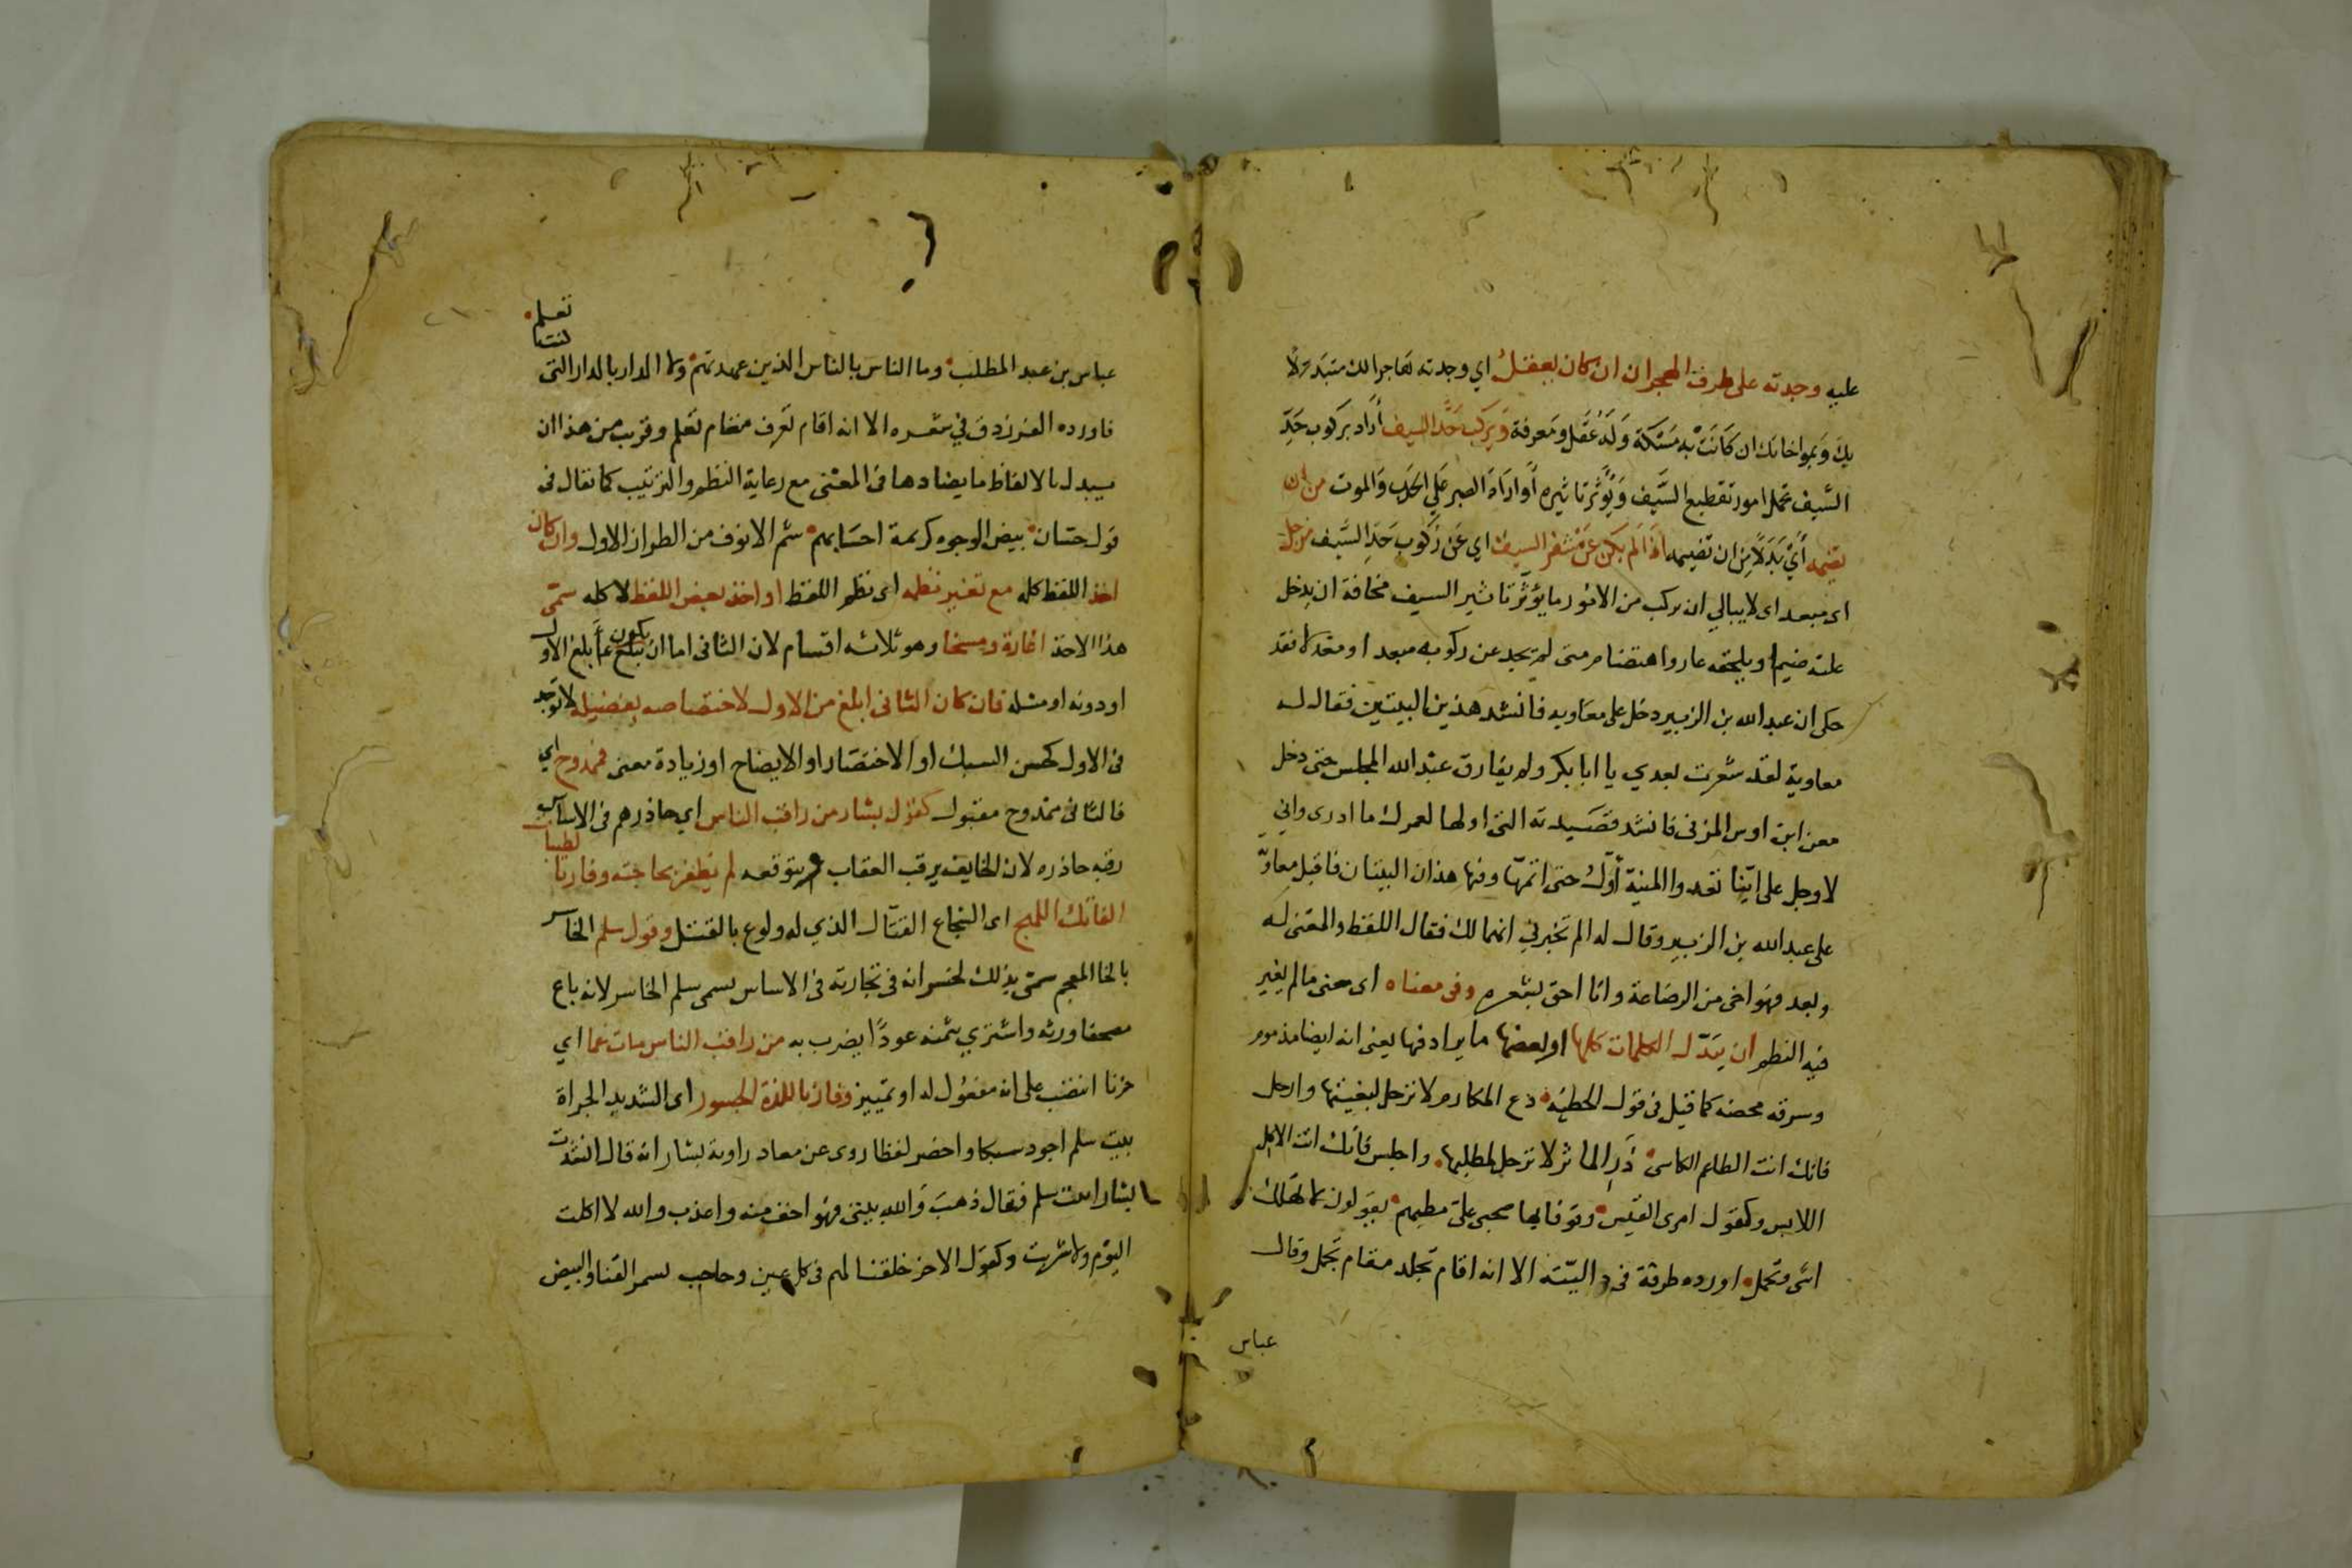 عليه وجدته على طرف الهجران ان كان يعقل اي وجدته تهاجرا لك متبدلا
بك وبمواخاتك ان كانت به مسكة وله عقل ومعرفة ويركب حد السيف أراد بركوب حد
السيف تحمل امور تقطيع السيف ويؤثر تاثيره أو اراد الصبر على الحرب والموت من ان
تضيمه أي بدلا من ان تضيمه اذا لم يكن عن شفرة السيف اي عن ركوب حد السيف مزحل
اى مبعد اى لا يبالي ان يركب من الامور ما يؤثر تاثير السيف مخافة ان يدخل
عليه ضيم او يلحقه عار واهتضام متى لم يجد عن ركوبه مبعدا ومعدلا فقد
حكى ان عبد الله بن الزبير دخل على معاويه فانشد هذين البيتين فقال له
معاوية لقد شعرت بعدي يا ابا بكر ولم يفارق عبد الله المجلس حتى دخل
معن ابن اوس المزنى فانشد قصيدته التى اولها لعمرك ما ادرى واني
لاوجل على اينا تعدوا المنية أول حتى اتمها وفيها هذان البيتان فاقبل معاوية
على عبد الله بن الزبير وقال له الم تخبرني انهما لك فقال اللفظ والمعنى له
وبعد فهو اخى من الرضاعة وانا احق بشعره وفى معناه اى معنى ما لم يغير
فيه النظم ان يبدل الكلمات كلها او بعضها ما يرادفها يعنى انه ايضا مذموم
وسرقه محضه كما قيل فى قول الحطيئه دع المكارم لا ترحل لبغيتها وارحل
فانك انت الطاعم الكاسى ذر الماثر لا ترحل لمطلبها واجلس فانك انت الاكل
اللابس وكقول امرى القيس وقوفا بها صحبى على مطيهم يقولون لا تهلك
اسى وتحمل اورده طرفة فى داليته الا انه اقام تجلد مقام تجمل وقال
عباس
تعلم
كنت
عباس بن عبد المطلب وما الناس بالناس الذين عهدتهم ولا الدار بالدار التى
فاورده الفرزدق في شعره الا انه اقام تعرف مقام تعلم وقريب من هذا ان
يبدل بالالفاظ ما يضادها فى المعنى مع رعاية النظم والترتيب كما تقال فى
قول حسان بيض الوجوه كريمة احسابهم شم الانوف من الطراز الاول وان كان
اخذ اللفظ كله مع تغيير نظمه اى نظم اللفظ او اخذ بعض اللفظ لا كله سمى
هذا الاخذ اغارة ومسخا وهو ثلاثه اقسام لان الثانى اما ان يكون ابلغ من الاول
او دونه او مثله فان كان الثانى ابلغ من الاول لاختصاصه بفضيله لا توجد
فى الاول كحسن السبك او الاختصار او الايضاح او زيادة معنى فممدوح اي
فالثانى ممدوح مقبول كقول بشار من راقب الناس اي حاذرهم فى الاساس
رقبه حاذره لان الخايف يرقب العقاب ويتوقعه لم يظفر بحاجته وفاز بالطيبات
الفاتك اللهج اى الشجاع القتال الذي له ولوع بالقتل وقول سلم الخاسر
بالخا المعجم سمى بذلك لخسرانه فى تجارته فى الاساس سمى سلم الخاسر لانه باع
مصحفا ورثه واشترى بثمنه عودا يضرب به من راقب الناس مات غما اي
حزنا انتصب على انه مفعول له او تمييز وفاز باللذة الجسور اى الشديد الجراة
بيت سلم اجود سبكا واخصر لفظا روى عن معاد راوية بشار انه قال انشدت
بشارا بيت سلم فقال ذهب والله بيتى فهو اخف منه واعذب والله لا اكلت
اليوم ولا شربت وكقول الاخر خلقنا لهم فى كل عين وحاجب بسمر القنا والبيض